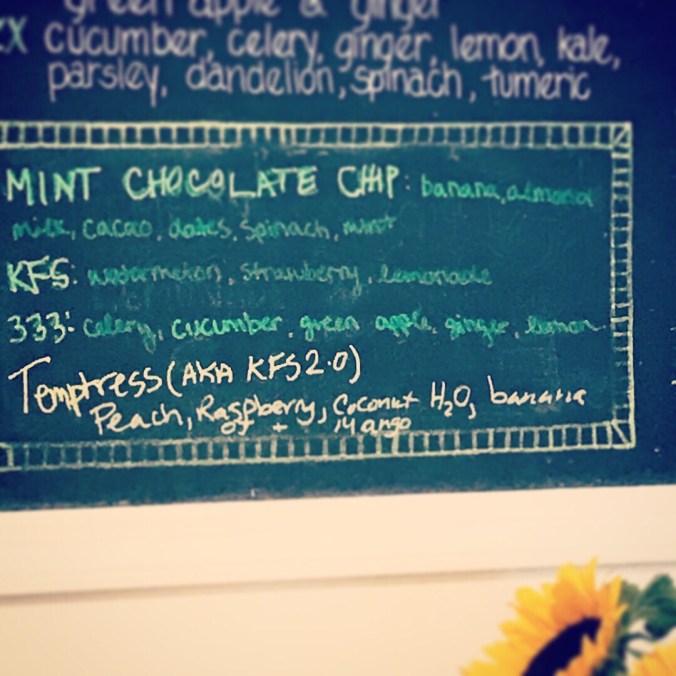 green apple & ginger
X cucumber, celery, ginger, lemon, kale,
parsley, dandelion, spinach, tumeric
MINT CHOCOLATE CHIP: banana, almond
milk, cacao, dates, spinach, mint
KFS: watermelon, strawberry, lemonade
333: celery, cucumber, green apple, ginger, lemon
Temptress (AKA KFS 2.0)
Peach, Raspberry, Coconut H₂O, banana
+ Mango